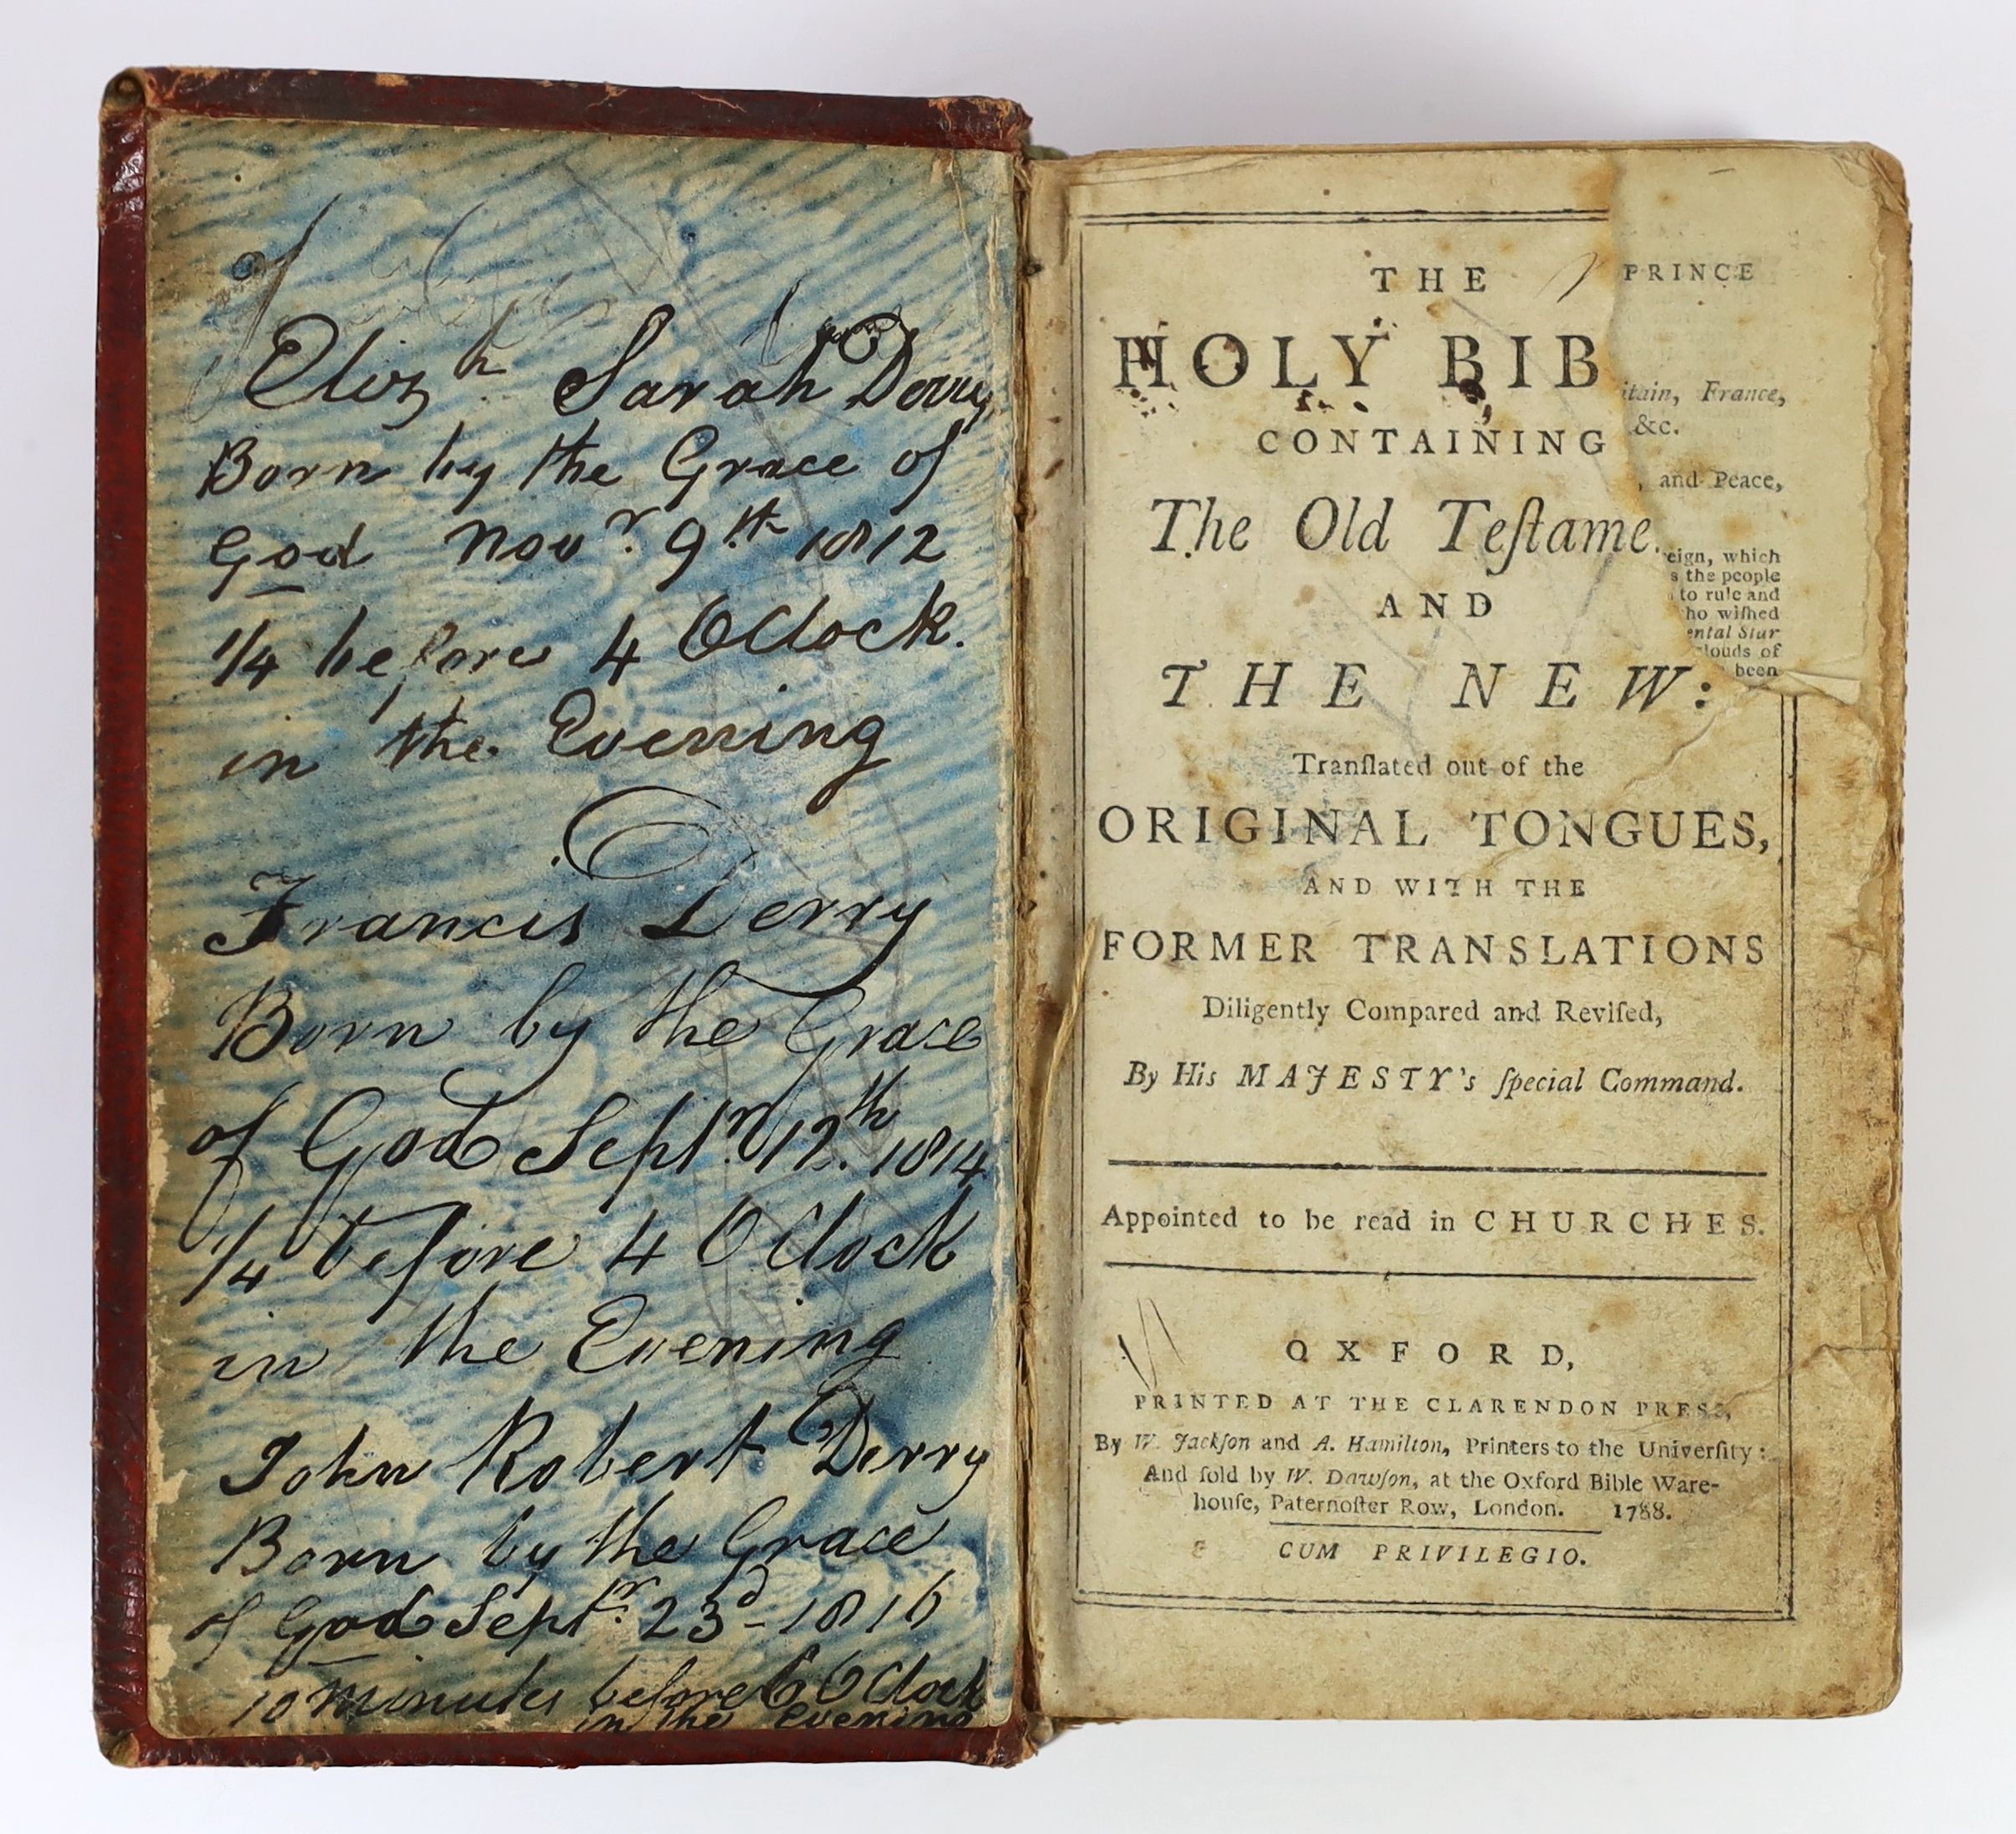 of
Eliz.h Sarah Derry
Born by the Grace of
God Novr. 9th 1812
1/4 before 4 OClock.
in the Evening
Francis Derry
Born by the Grace
of God Septr. 12th. 1814
1/4 before 4 OClock
in the Evening
John Robert Derry
Born by the Grace
of God Septr. 23d - 1816
10 minutes before 6 OClock
in the evening
THE
HOLY BIB
CONTAINING
The Old Teſtame
AND
THE NEW:
Tranſlated out of the
ORIGINAL TONGUES,
AND WITH THE
FORMER TRANSLATIONS
Diligently Compared and Reviſed,
By His MAJESTY's ſpecial Command.
Appointed to be read in CHURCHES.
OXFORD,
PRINTED AT THE CLARENDON PRESS,
By W. Jackſon and A. Hamilton, Printers to the Univerſity:
And ſold by W. Dawſon, at the Oxford Bible Ware-
houſe, Paternoſter Row, London. 1788.
CUM PRIVILEGIO.
PRINCE
itain, France,
&c.
, and Peace,
eign, which
s the people
to rule and
ho wiſhed
ental Star
clouds of
been